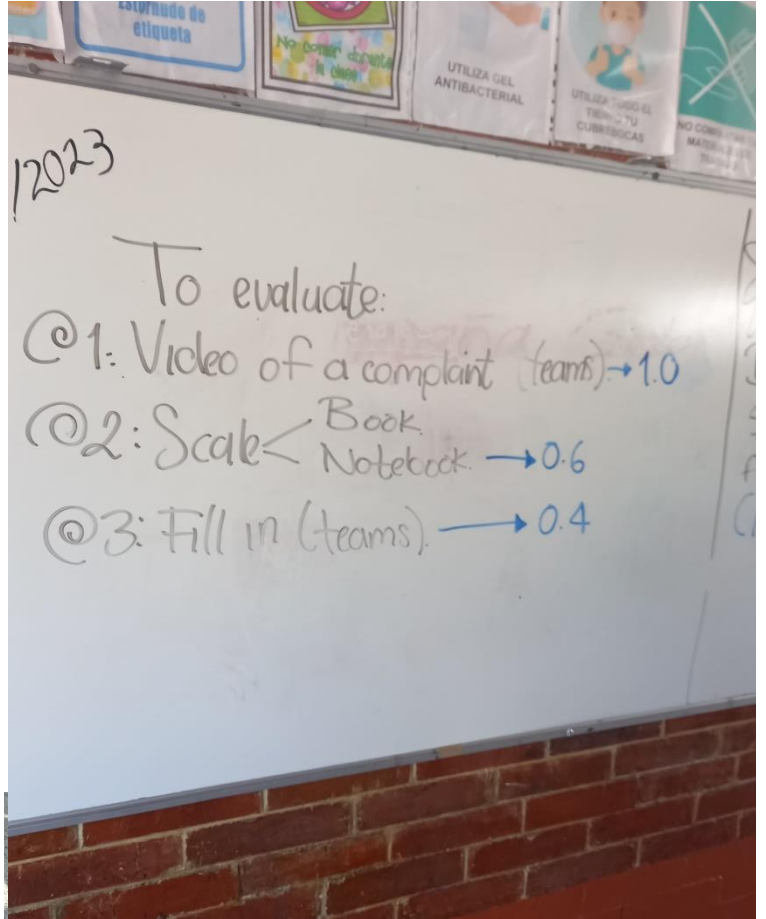 Estornudo de
etiqueta
No comer durante
la clase
UTILIZA GEL
ANTIBACTERIAL
UTILIZA TODO EL
TIEMPO TU
CUBREBOCAS
NO
/2023
To evaluate:
@1: Video of a complaint (teams). → 1.0
@2: Scale < Book.
Notebook. → 0.6
@3: Fill in (teams). → 0.4